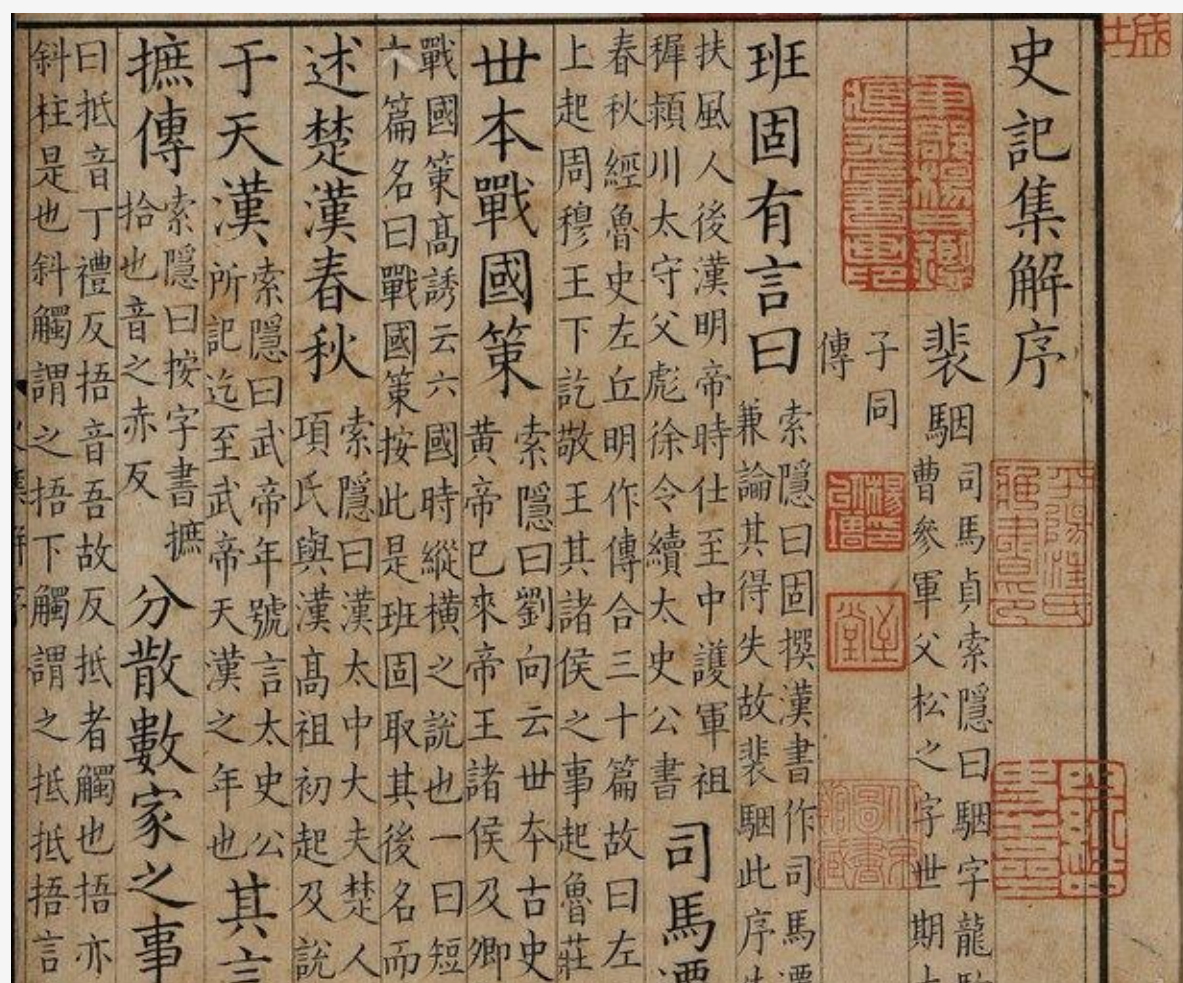 史記集解序
裴駰
司馬貞索隱曰駰字龍
曹參軍父松之字世期
子同
傳
班固有言曰
索隱曰固撰漢書作司馬遷
兼論其得失故裴駰此序
扶風人後漢明帝時仕至中護軍祖
穉頴川太守父彪徐令續太史公書
司馬遷
春秋經魯史左丘明作傳合三十篇故曰左
上起周穆王下訖敬王其諸侯之事起魯莊
丗本戰國策
索隱曰劉向云丗本古史
黄帝已來帝王諸侯及卿
戰國策髙誘云六國時縱橫之說也一曰短
十篇名曰戰國策按此是班固取其後名而
述楚漢春秋
索隱曰漢太中大夫楚人
項氏與漢髙祖初起及說
于天漢
索隱曰武帝年號言太史公
所記迄至武帝天漢之年也
其言
摭傳
索隱曰按字書摭
拾也音之赤反
分散數家之事
曰抵音丁禮反捂音吾故反抵者觸也捂亦
斜柱是也斜觸謂之捂下觸謂之抵抵捂言